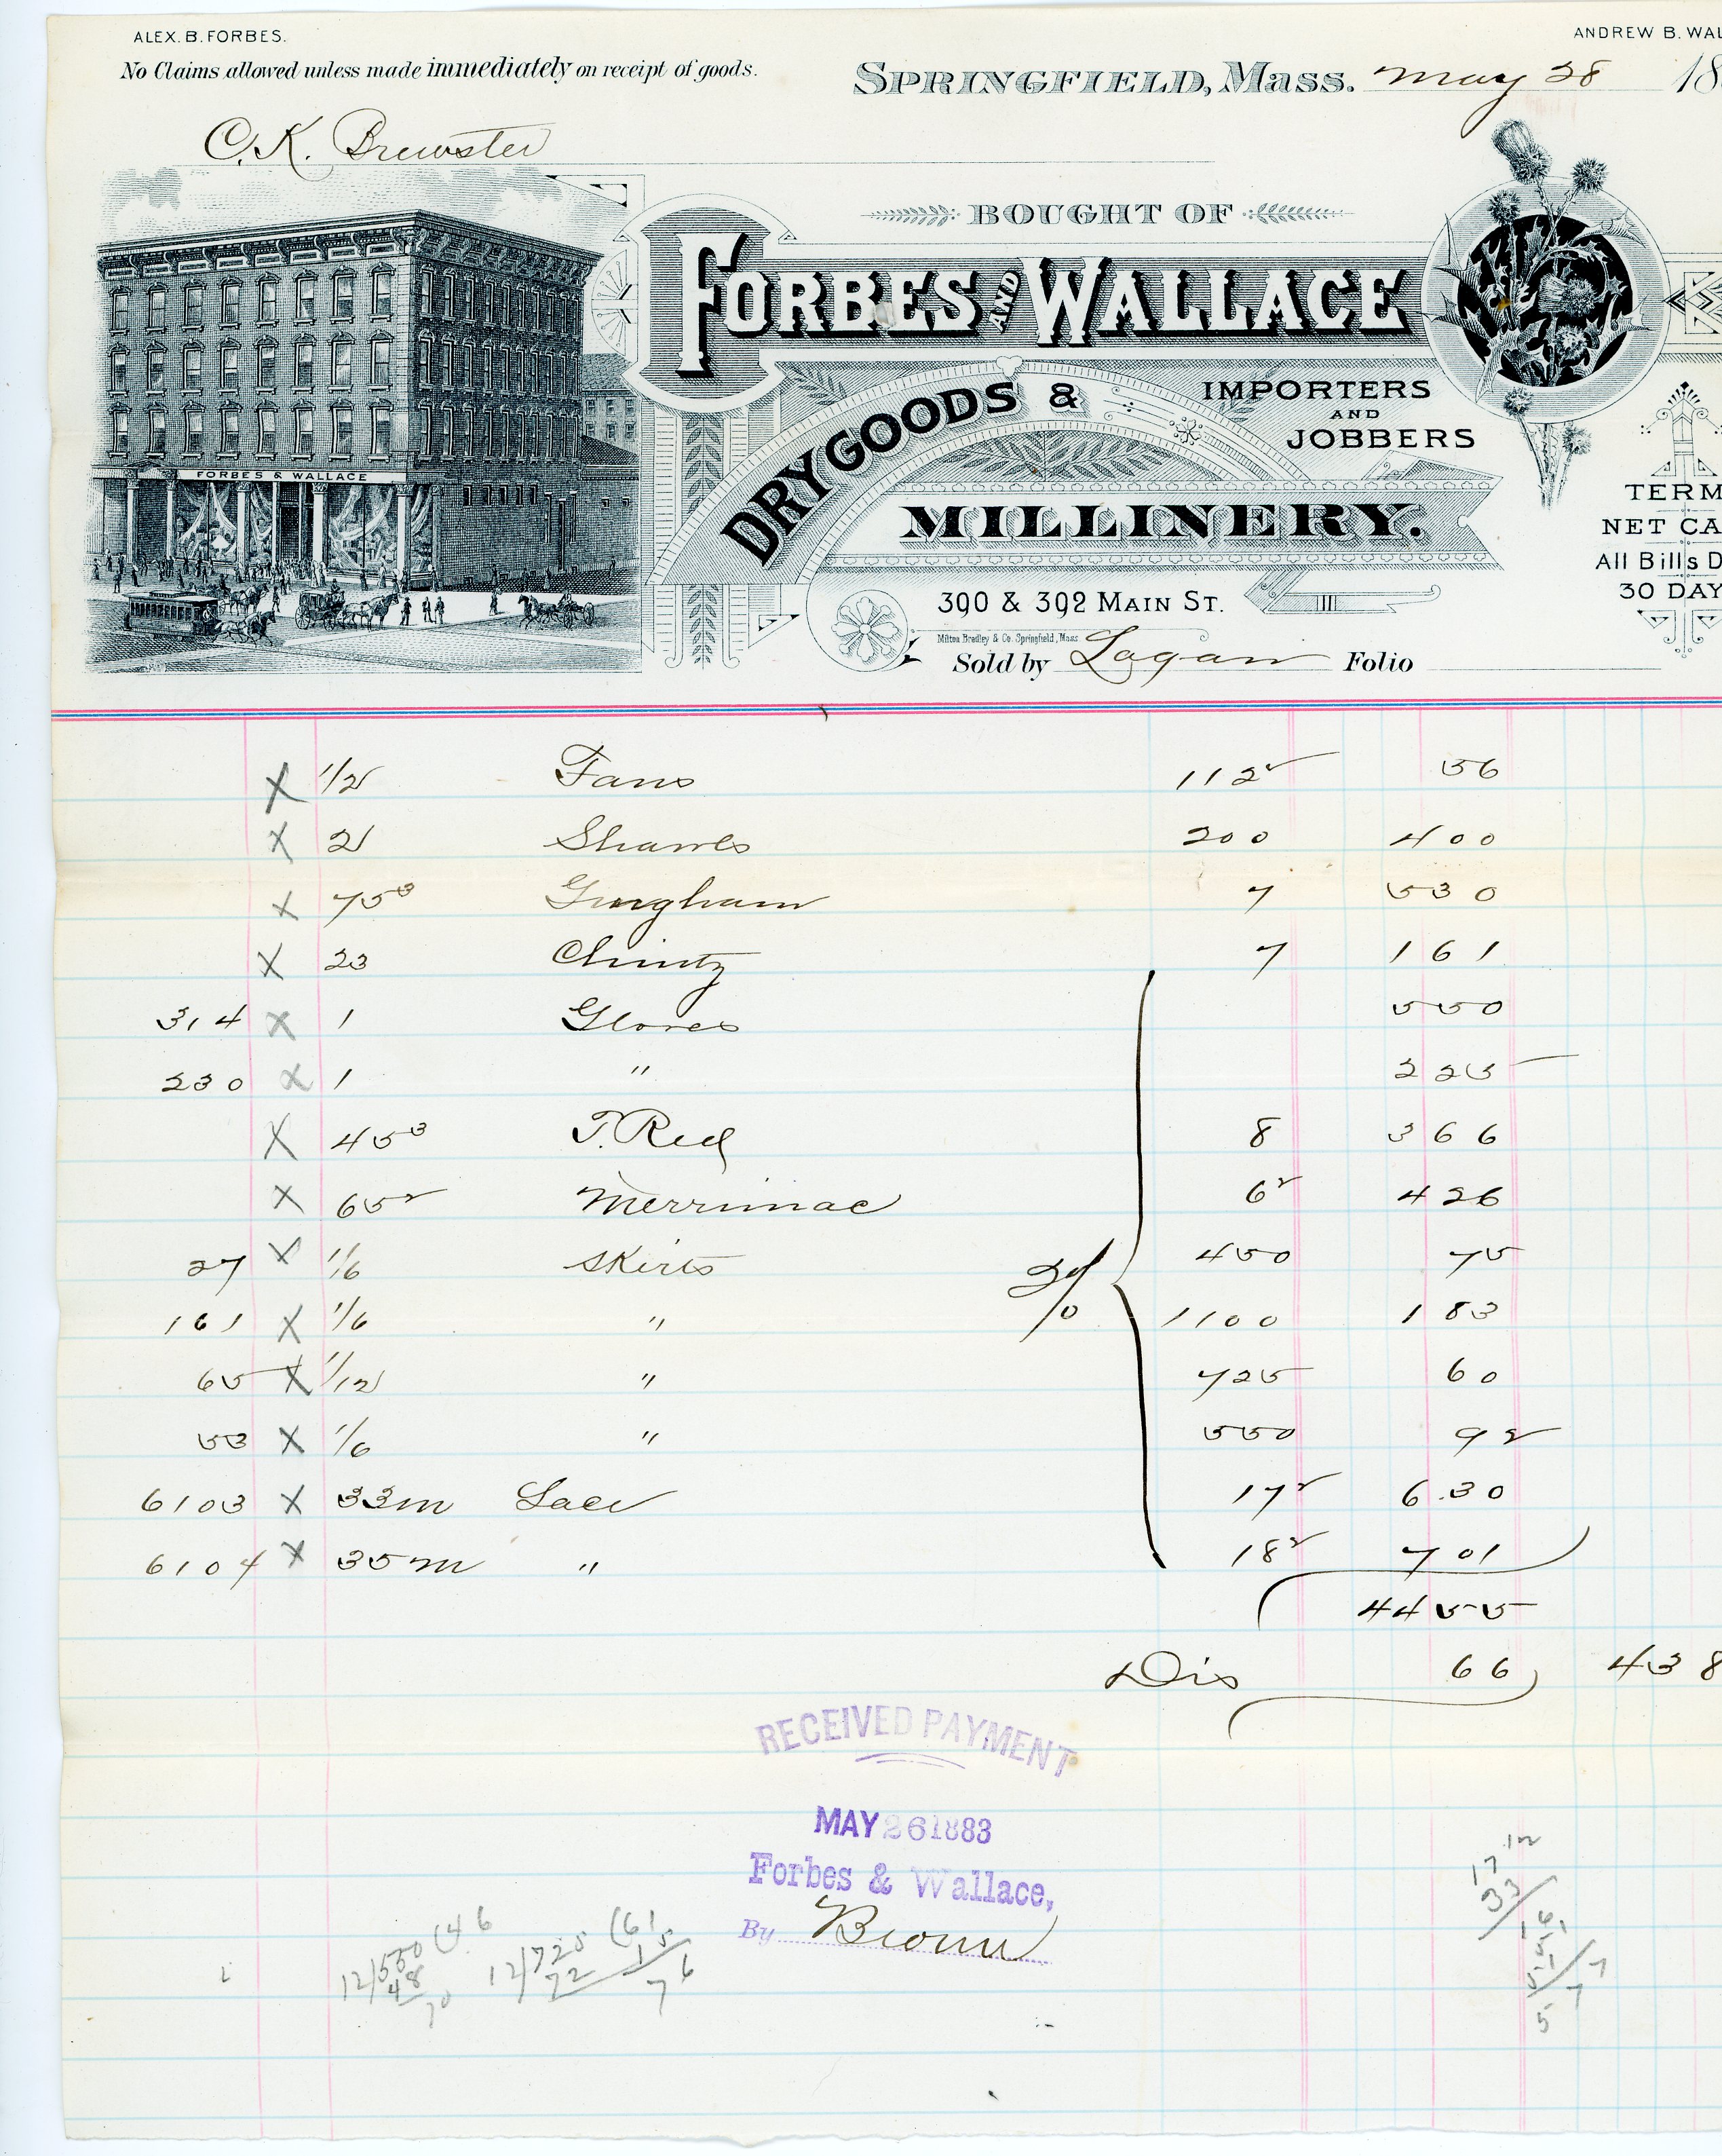 ALEX. B. FORBES.
ANDREW B. WAL
No Claims allowed unless made immediately on receipt of goods.
SPRINGFIELD, Mass. May 28 18
C. K. Brewster
BOUGHT OF
FORBES AND WALLACE
DRY GOODS &
IMPORTERS
AND
JOBBERS
MILLINERY.
FORBES & WALLACE
TERM
NET CA
All Bills D
30 DAY
390 & 392 MAIN ST.
Milton Bradley & Co. Springfield, Mass.
Sold by Logan Folio
X 1/2 Fans 112 56
X 2 Shawls 200 400
X 75³ Gingham 7 530
X 23 Chintz 7 161
314 X 1 Gloves 550
230 X 1 " 225
X 45³ T. Red 8 366
X 65² Merrimac 6² 426
27 X 1/6 Skirts 450 75
161 X 1/6 " 1100 183
65 X 1/12 " 725 60
53 X 1/6 " 550 92
6103 X 33m Lace 17² 6.30
6104 X 35m " 18² 701
2%
4455
Dis 66 438
RECEIVED PAYMENT
MAY 26 1883
Forbes & Wallace,
By Brown
12/550 (4 6
48
70
12/725 (6 1
72